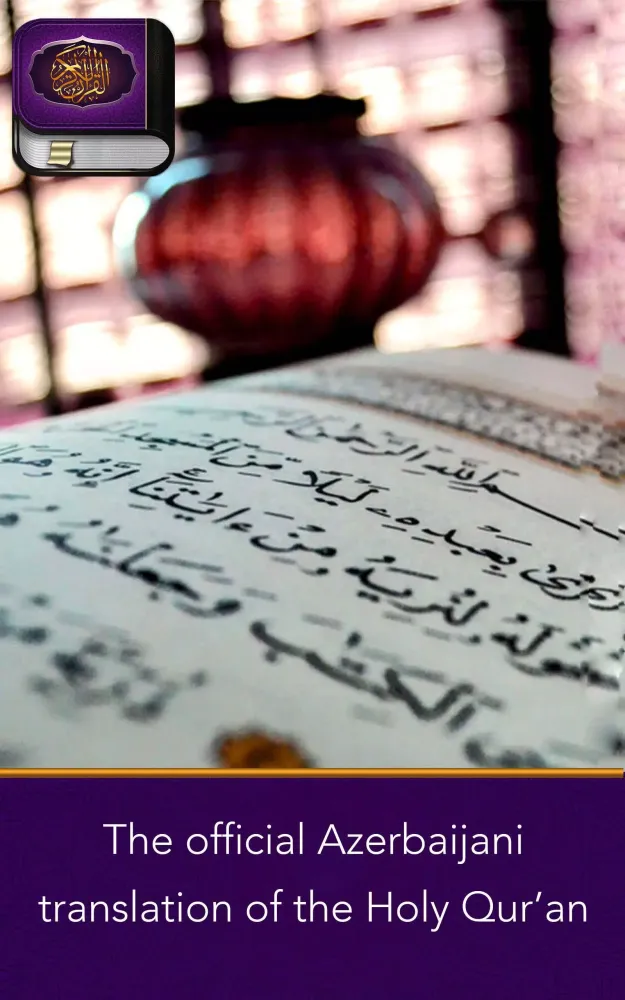 القرآن الكريم
بسم الله الرحمن الرحيم
بِعَبْدِهِۦ لَيْلًا مِّنَ ٱلْمَسْجِدِ
لِنُرِيَهُۥ مِنْ ءَايَٰتِنَآ إِنَّهُۥ هُوَ
ٱلْكِتَٰبَ وَجَعَلْنَٰهُ
The official Azerbaijani
translation of the Holy Qur’an